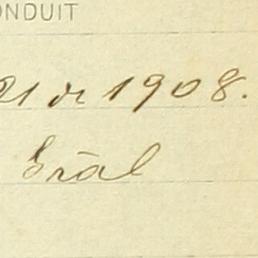 ONDUIT
21 de 1908.
Grāl